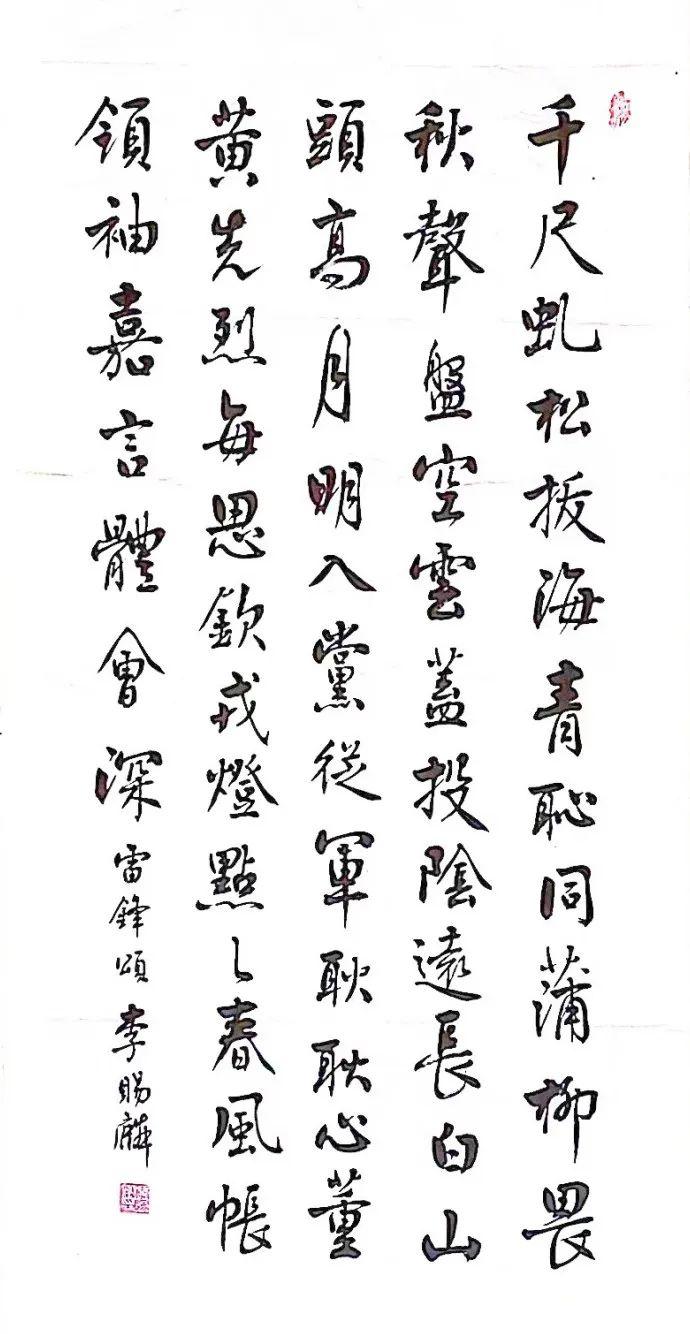 千尺虬松拔海青恥同蒲柳畏
秋聲盤空雲蓋投陰遠長白山
頭高月明入黨從軍耿耿心董
黄先烈每思欽戎燈點々春風帳
領袖嘉言體會深雷鋒頌李賜麟